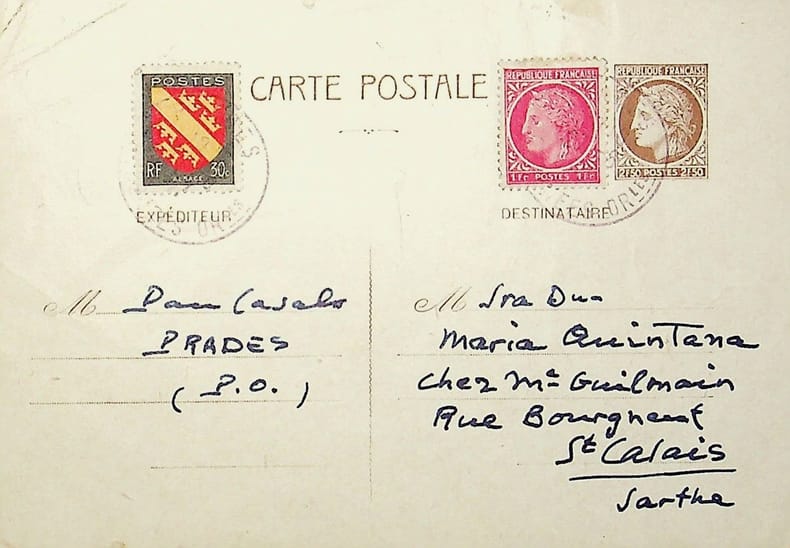 POSTES
RF 30c
ALSACE
CARTE POSTALE
REPUBLIQUE FRANÇAISE
1Fr POSTES 1Fr
REPUBLIQUE FRANÇAISE
2F50 POSTES 2F50
EXPÉDITEUR
M Pau Casals
PRADES
(P.O.)
DESTINATAIRE
M Sra Dna
Maria Quintana
chez Me Guilmain
Rue Bourgneuf
St Calais
Sarthe